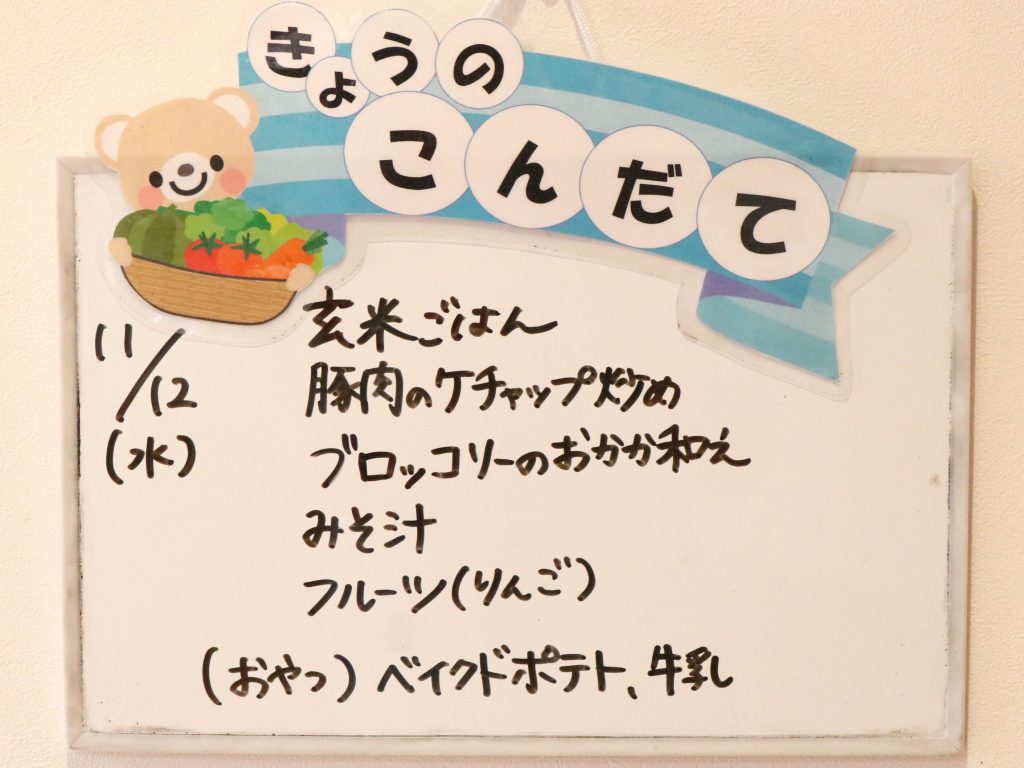 きょうの
こんだて
11/12
(水)
玄米ごはん
豚肉のケチャップ炒め
ブロッコリーのおかか和え
みそ汁
フルーツ(りんご)
(おやつ) ベイクドポテト、牛乳